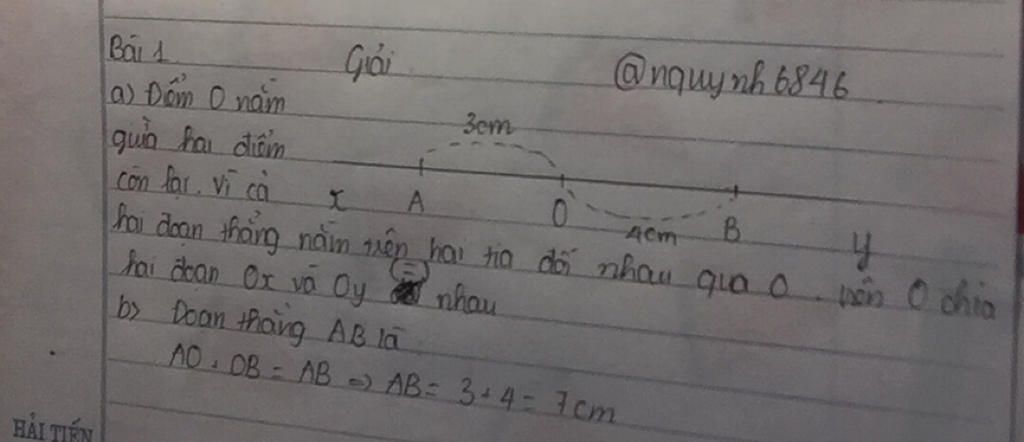 Bài 1 Giải @nquynh6846
a) Điểm O nằm
giữa hai điểm
3cm
còn lại. vì cả
x A O 4cm B y
hai đoạn thẳng nằm trên hai tia đối nhau qua O. nên O chia
hai đoạn Ox và Oy = nhau
b) Đoạn thẳng AB là
AO + OB = AB => AB = 3 + 4 = 7cm
HẢI TIẾN